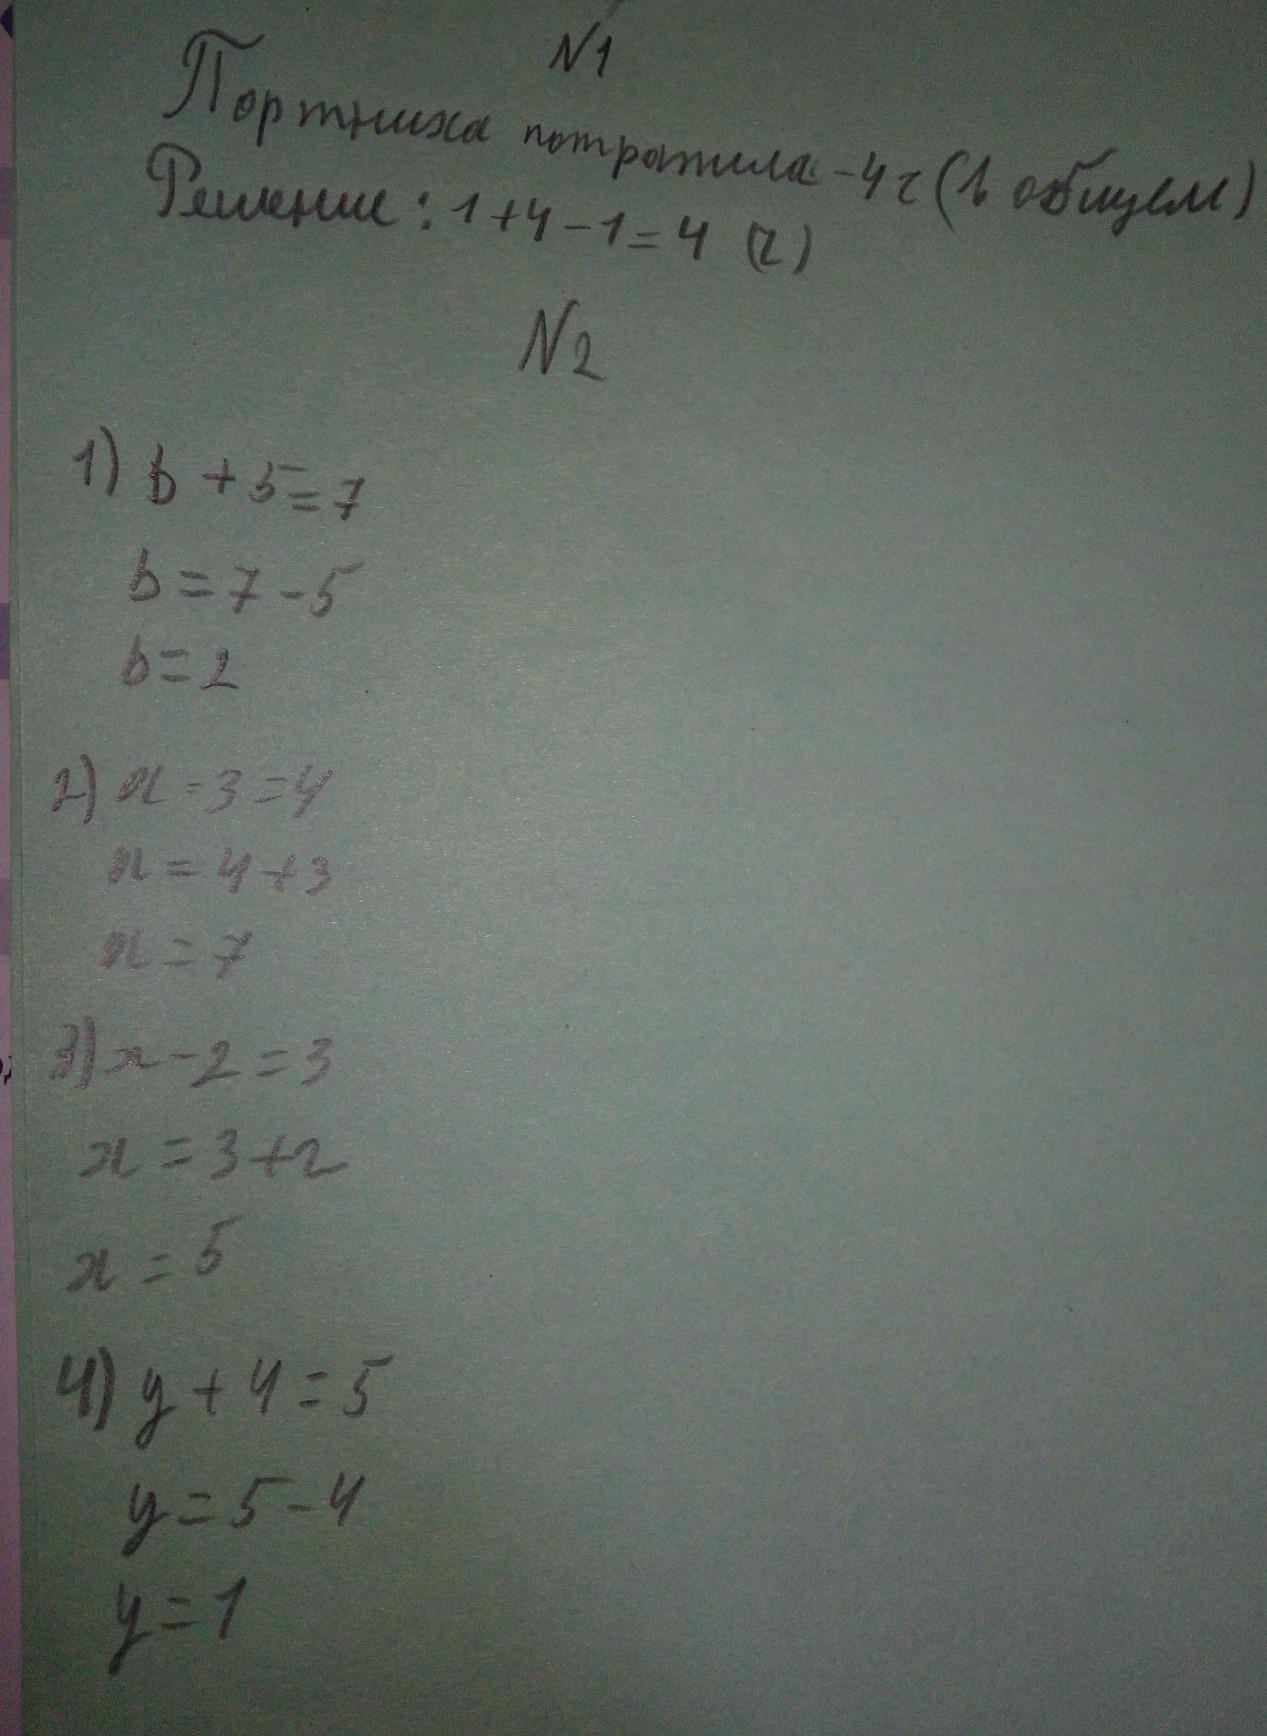 N1
Портниха потратила - 4 ч (в общем)
Решение: 1+4-1=4 (ч)
N2
1) b + 5 = 7
b = 7 - 5
b = 2
2) x - 3 = 4
x = 4 + 3
x = 7
3) x - 2 = 3
x = 3 + 2
x = 5
4) y + 4 = 5
y = 5 - 4
y = 1